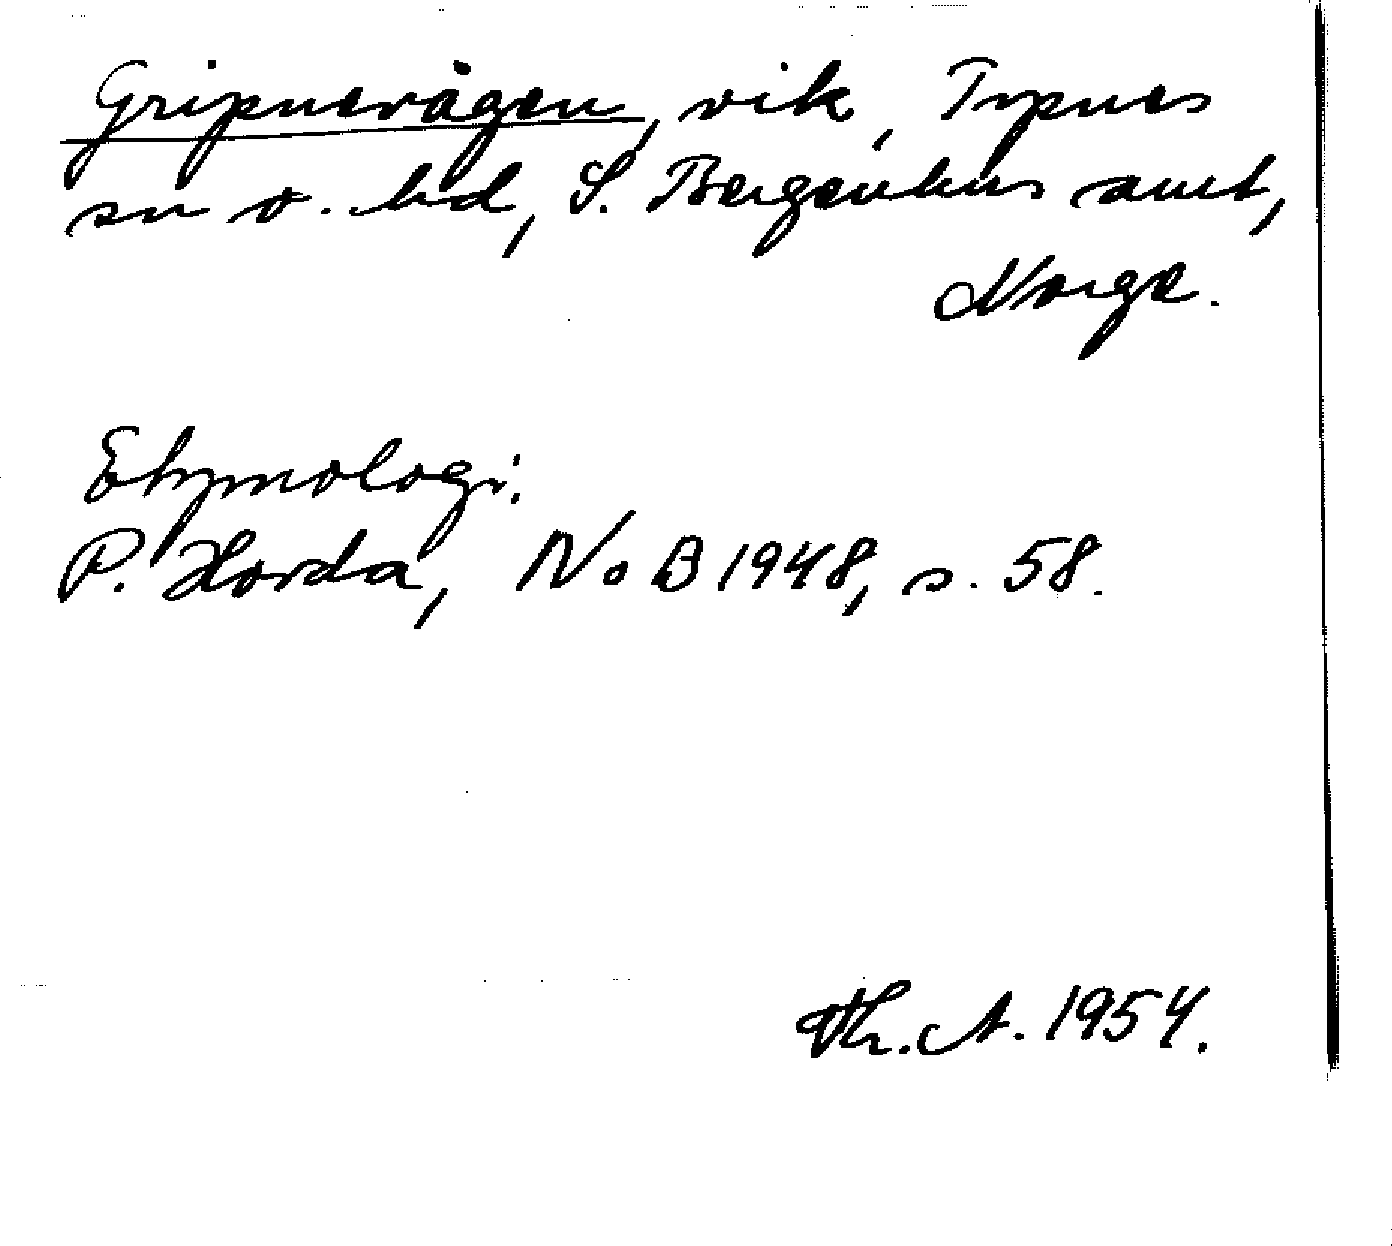 Gripnevågen, vik, Tysnes
sn o. hd, S. Bergenhus amt,
Norge.
Etymologi:
P. Hovda, NoB 1948, s. 58.
Th. A. 1954.